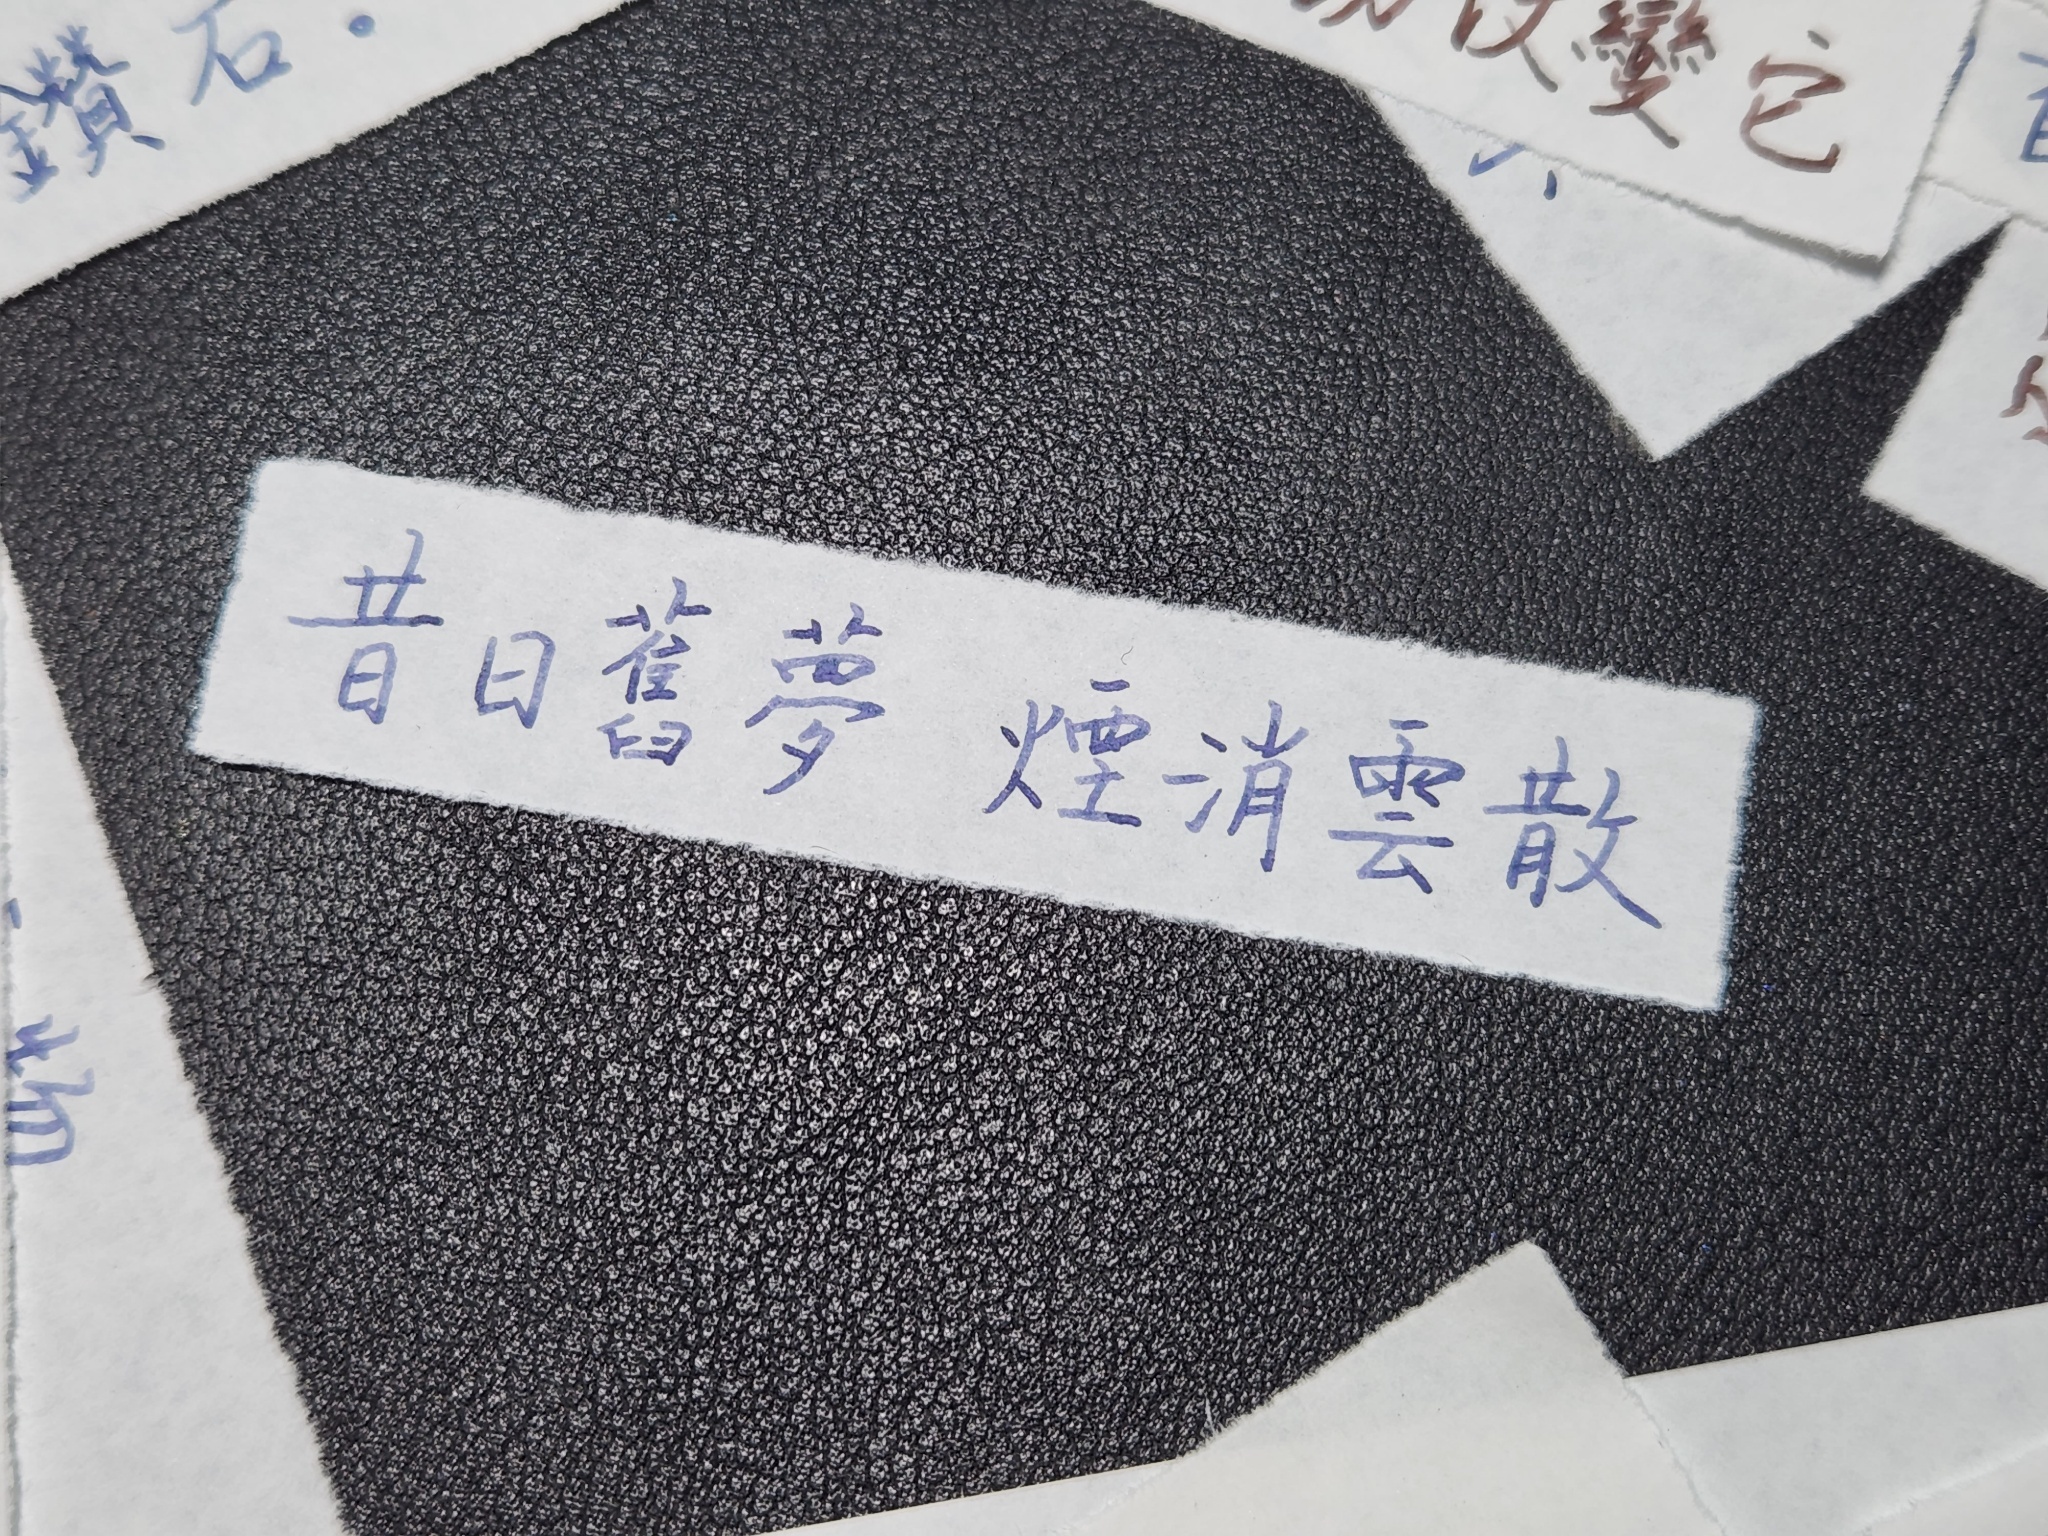 鑽石.
改變它
昔日舊夢 煙消雲散